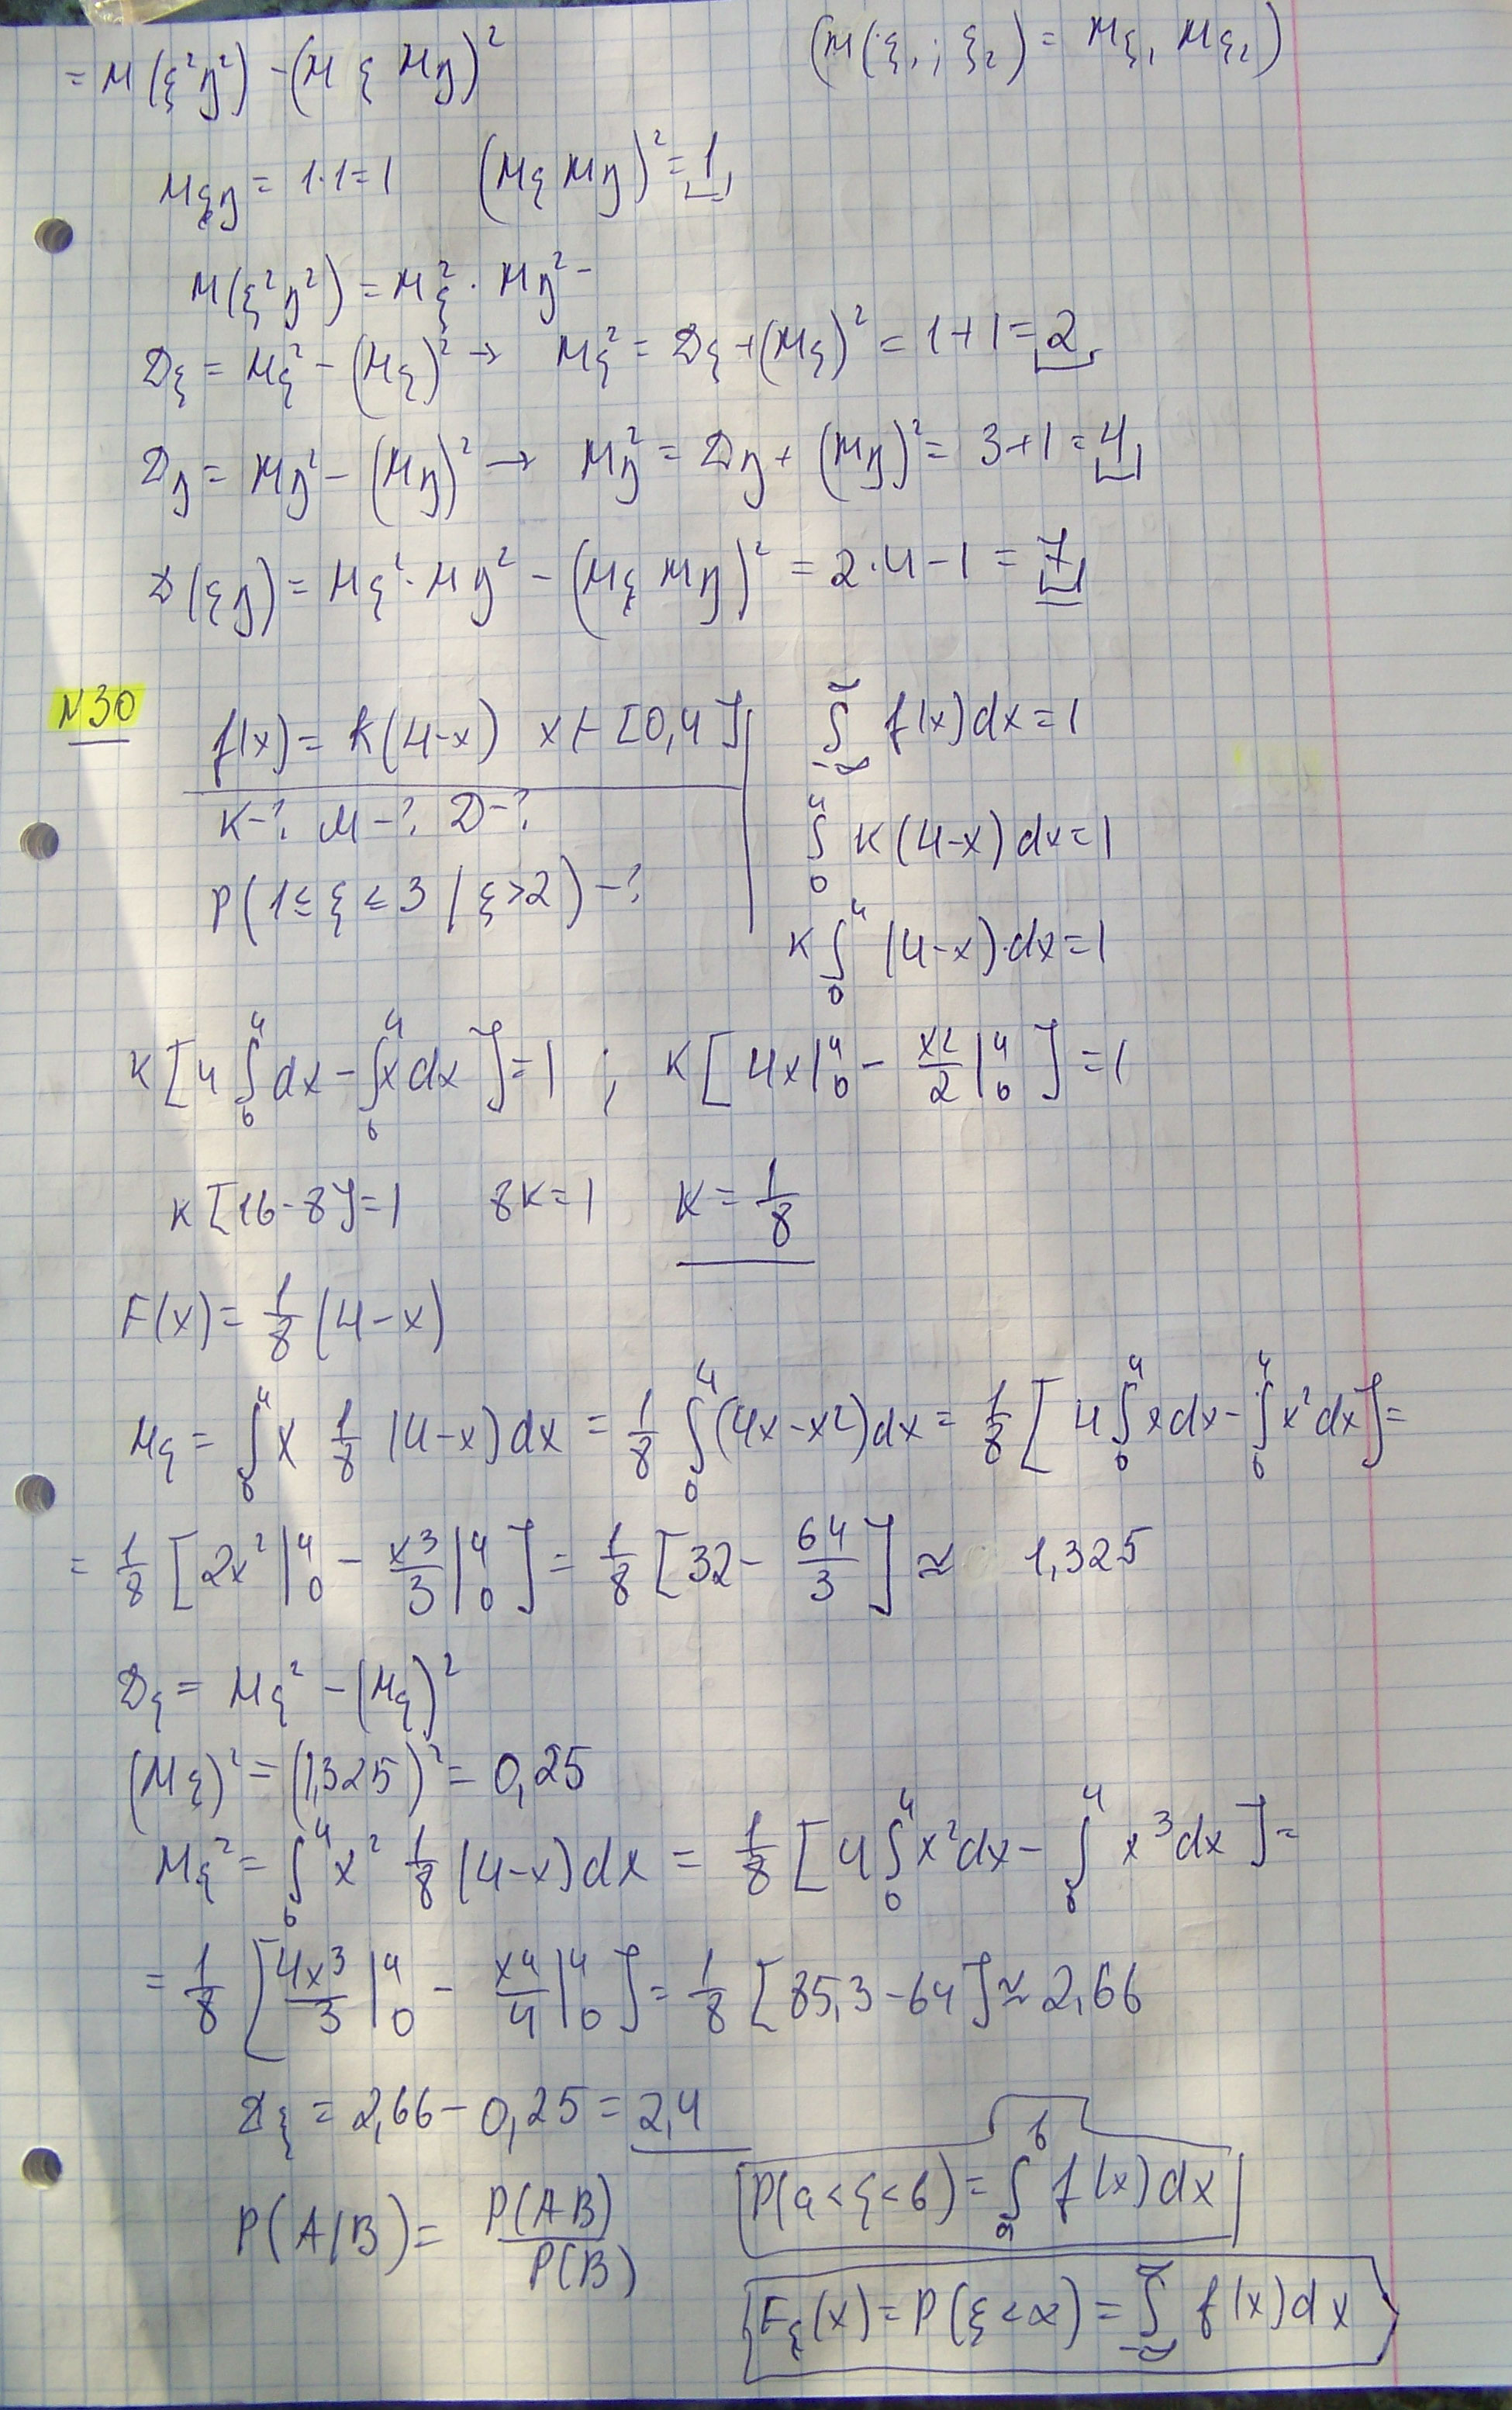 = M(ξ²η²) - (Mξ Mη)² (M(ξ₁; ξ₂) = Mξ₁ Mξ₂)
Mξη = 1·1=1 (Mξ Mη)² = 1
M(ξ²η²) = Mξ² · Mη² -
Dξ = Mξ² - (Mξ)² → Mξ² = Dξ + (Mξ)² = 1+1=2
Dη = Mη² - (Mη)² → Mη² = Dη + (Mη)² = 3+1=4
D(ξη) = Mξ² · Mη² - (Mξ Mη)² = 2·4-1 = 7
N30
f(x) = K(4-x) x∈[0,4] ∫_{-∞}^{∞} f(x)dx=1
K-? M-? D-? ∫₀⁴ K(4-x)dx=1
P(1≤ξ≤3 / ξ>2) -?
K∫₀⁴ (4-x)·dx=1
K[4∫₀⁴dx - ∫₀⁴xdx]=1 ; K[4x|₀⁴ - x²/2|₀⁴]=1
K[16-8]=1 8K=1 K=1/8
F(x) = 1/8 (4-x)
Mξ = ∫₀⁴ x 1/8 (4-x)dx = 1/8 ∫₀⁴(4x-x²)dx = 1/8 [4∫₀⁴xdx - ∫₀⁴x²dx]=
= 1/8 [2x²|₀⁴ - x³/3|₀⁴] = 1/8 [32 - 64/3] ≈ 1,325
Dξ = Mξ² - (Mξ)²
(Mξ)² = (1,325)² = 0,25
Mξ² = ∫₀⁴ x² 1/8 (4-x)dx = 1/8 [4∫₀⁴x²dx - ∫₀⁴ x³dx]=
= 1/8 [4x³/3|₀⁴ - x⁴/4|₀⁴] = 1/8 [85,3-64] ≈ 2,66
Dξ = 2,66-0,25 = 2,4
P(A/B) = P(AB)/P(B) P(a<ξ<b) = ∫ₐᵇ f(x)dx
Fξ(x) = P(ξ<x) = ∫_{-∞}^{∞} f(x)dx